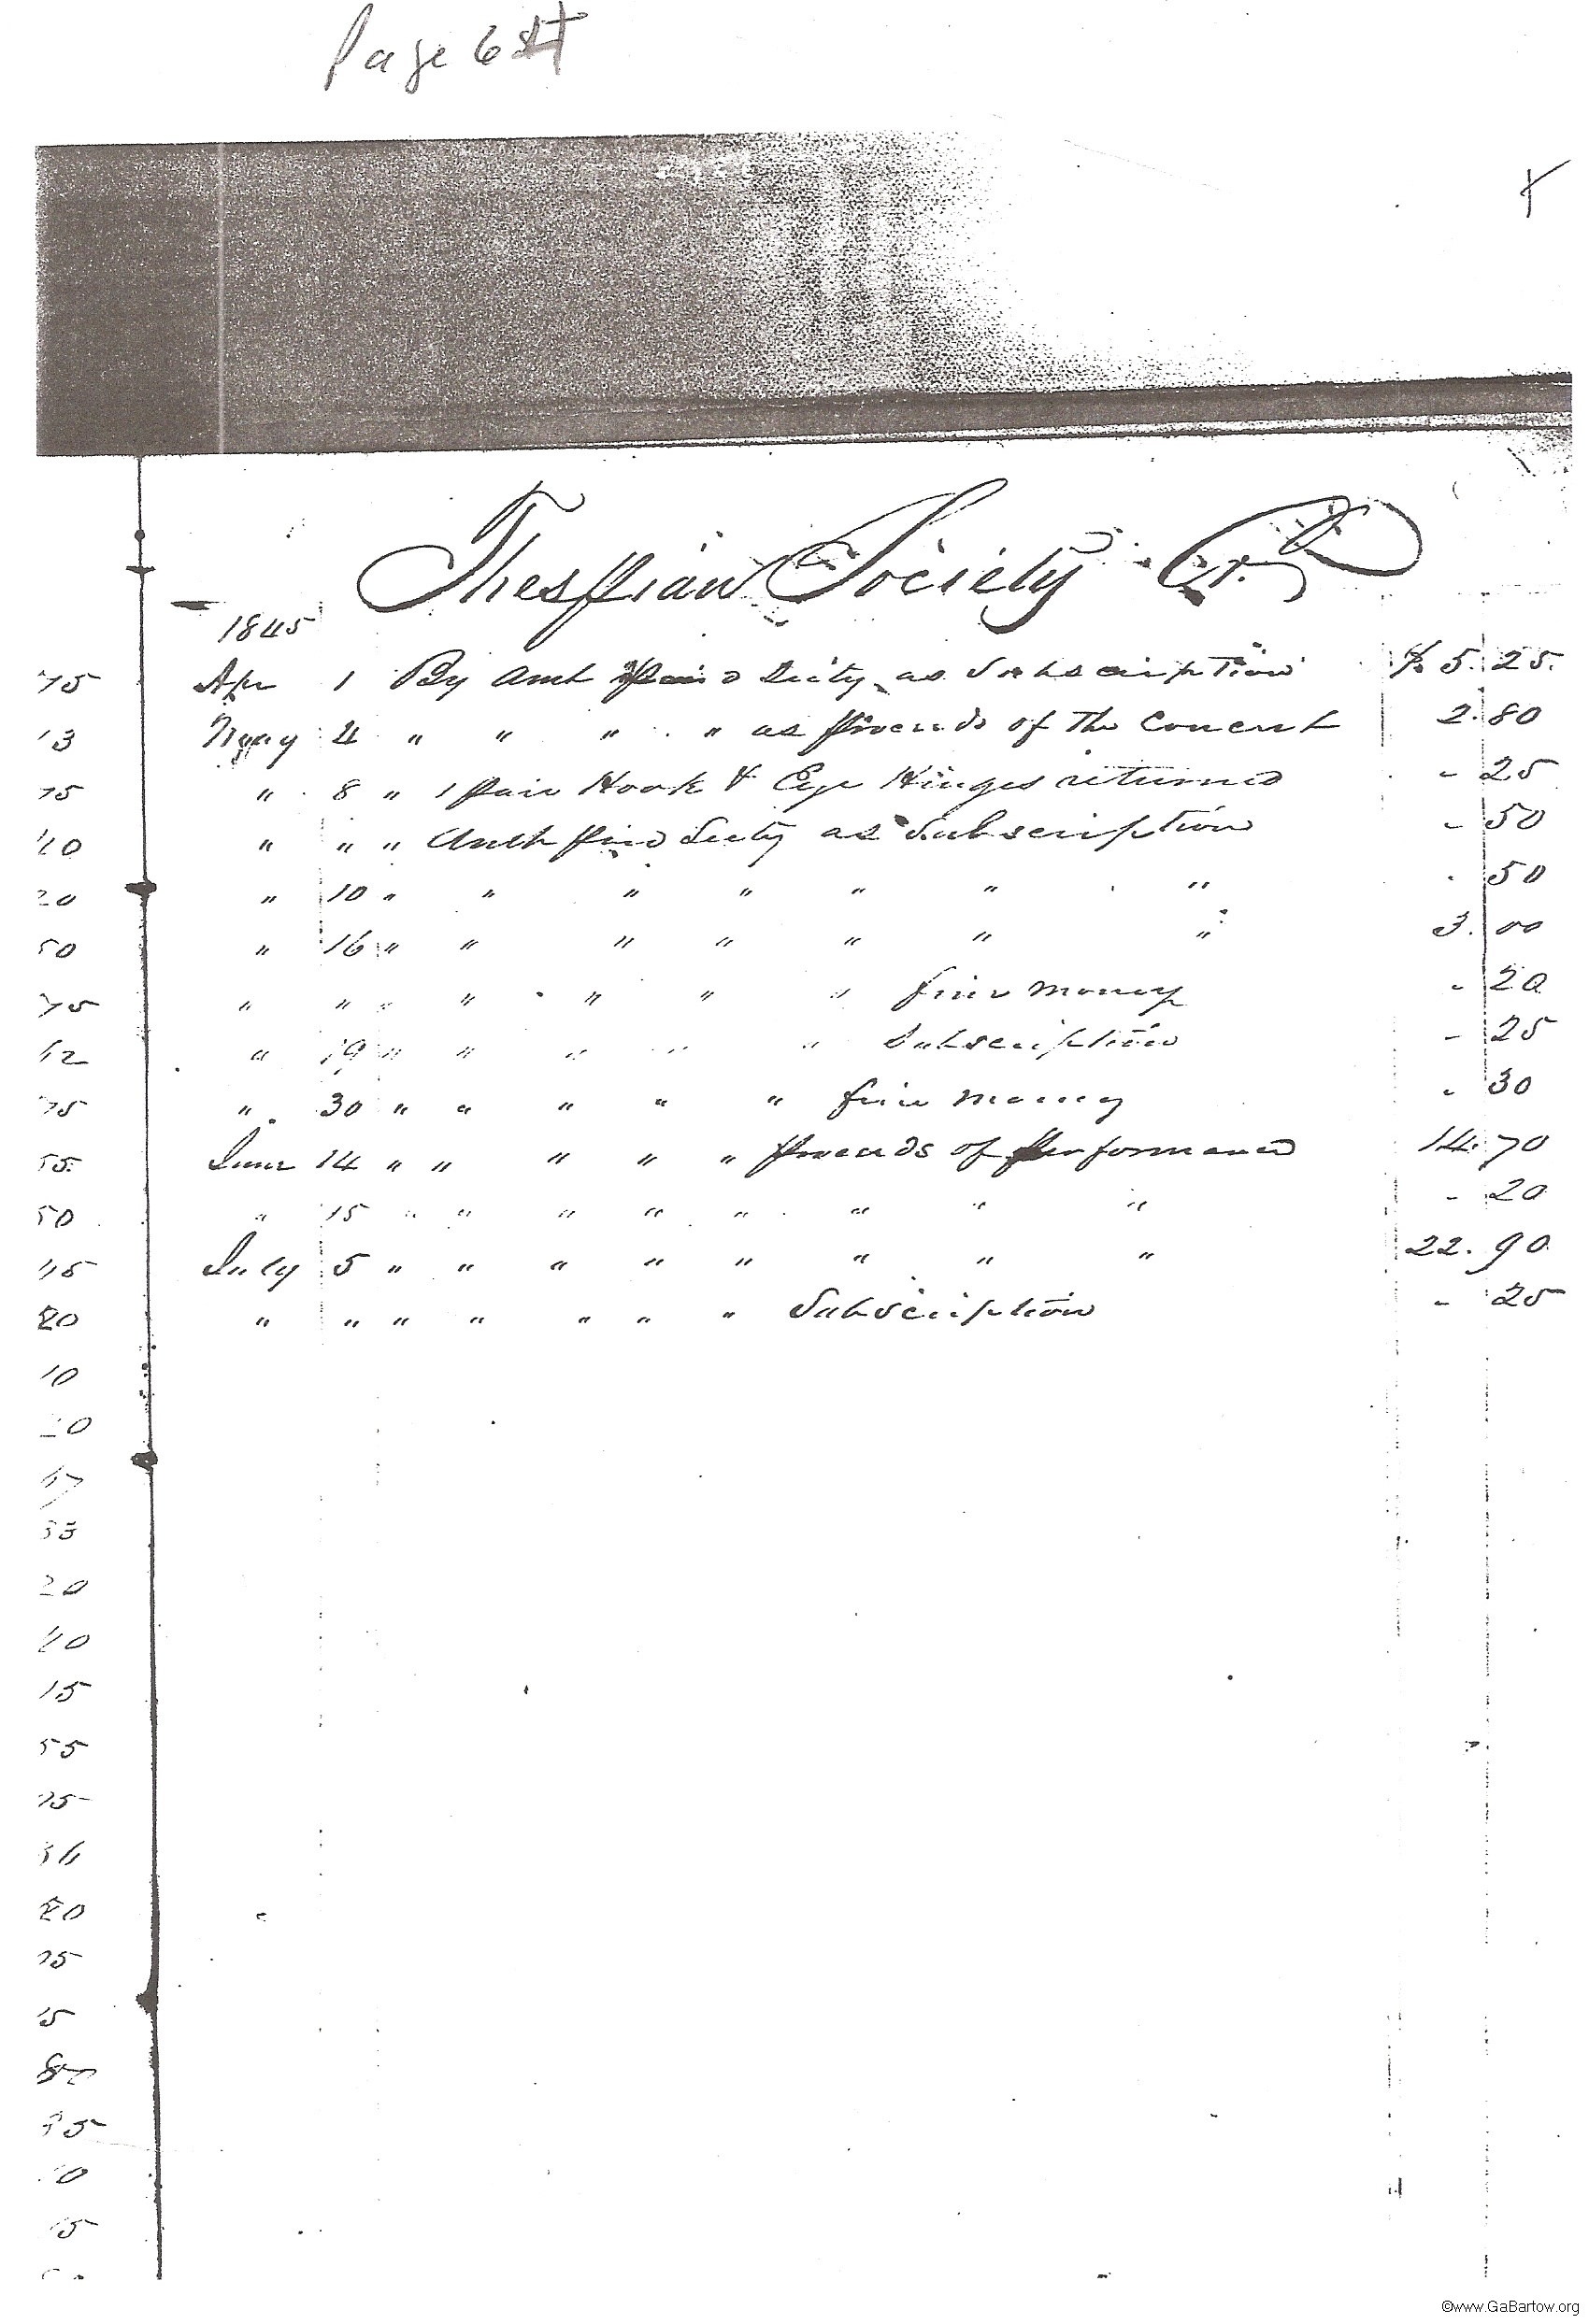 Page 6
Thespian Society Cr.
1845
Apr 1 By Amt paid Secty as Subscription $ 5.25.
May 4 " " " " as proceeds of the Concert 2.80
" 8 " 1 pair Hook & Eye Hinges returned - 25
" " " Amt paid Secty as Subscription - 50
" 10 " " " " " " " . 50
" 16 " " " " " " " 3.00
" " " " " " " fine money - 20
" 19 " " " " " Subscription - 25
" 30 " " " " " fine money - 30
June 14 " " " " " proceeds of performance 14.70
" 15 " " " " " " " " - 20
July 5 " " " " " " " " 22.90
" " " " " " " Subscription - 25
75
13
75
40
20
50
75
12
75
55
50
45
20
10
20
20
40
15
55
75
20
75
15
15
©www.GaBartow.org